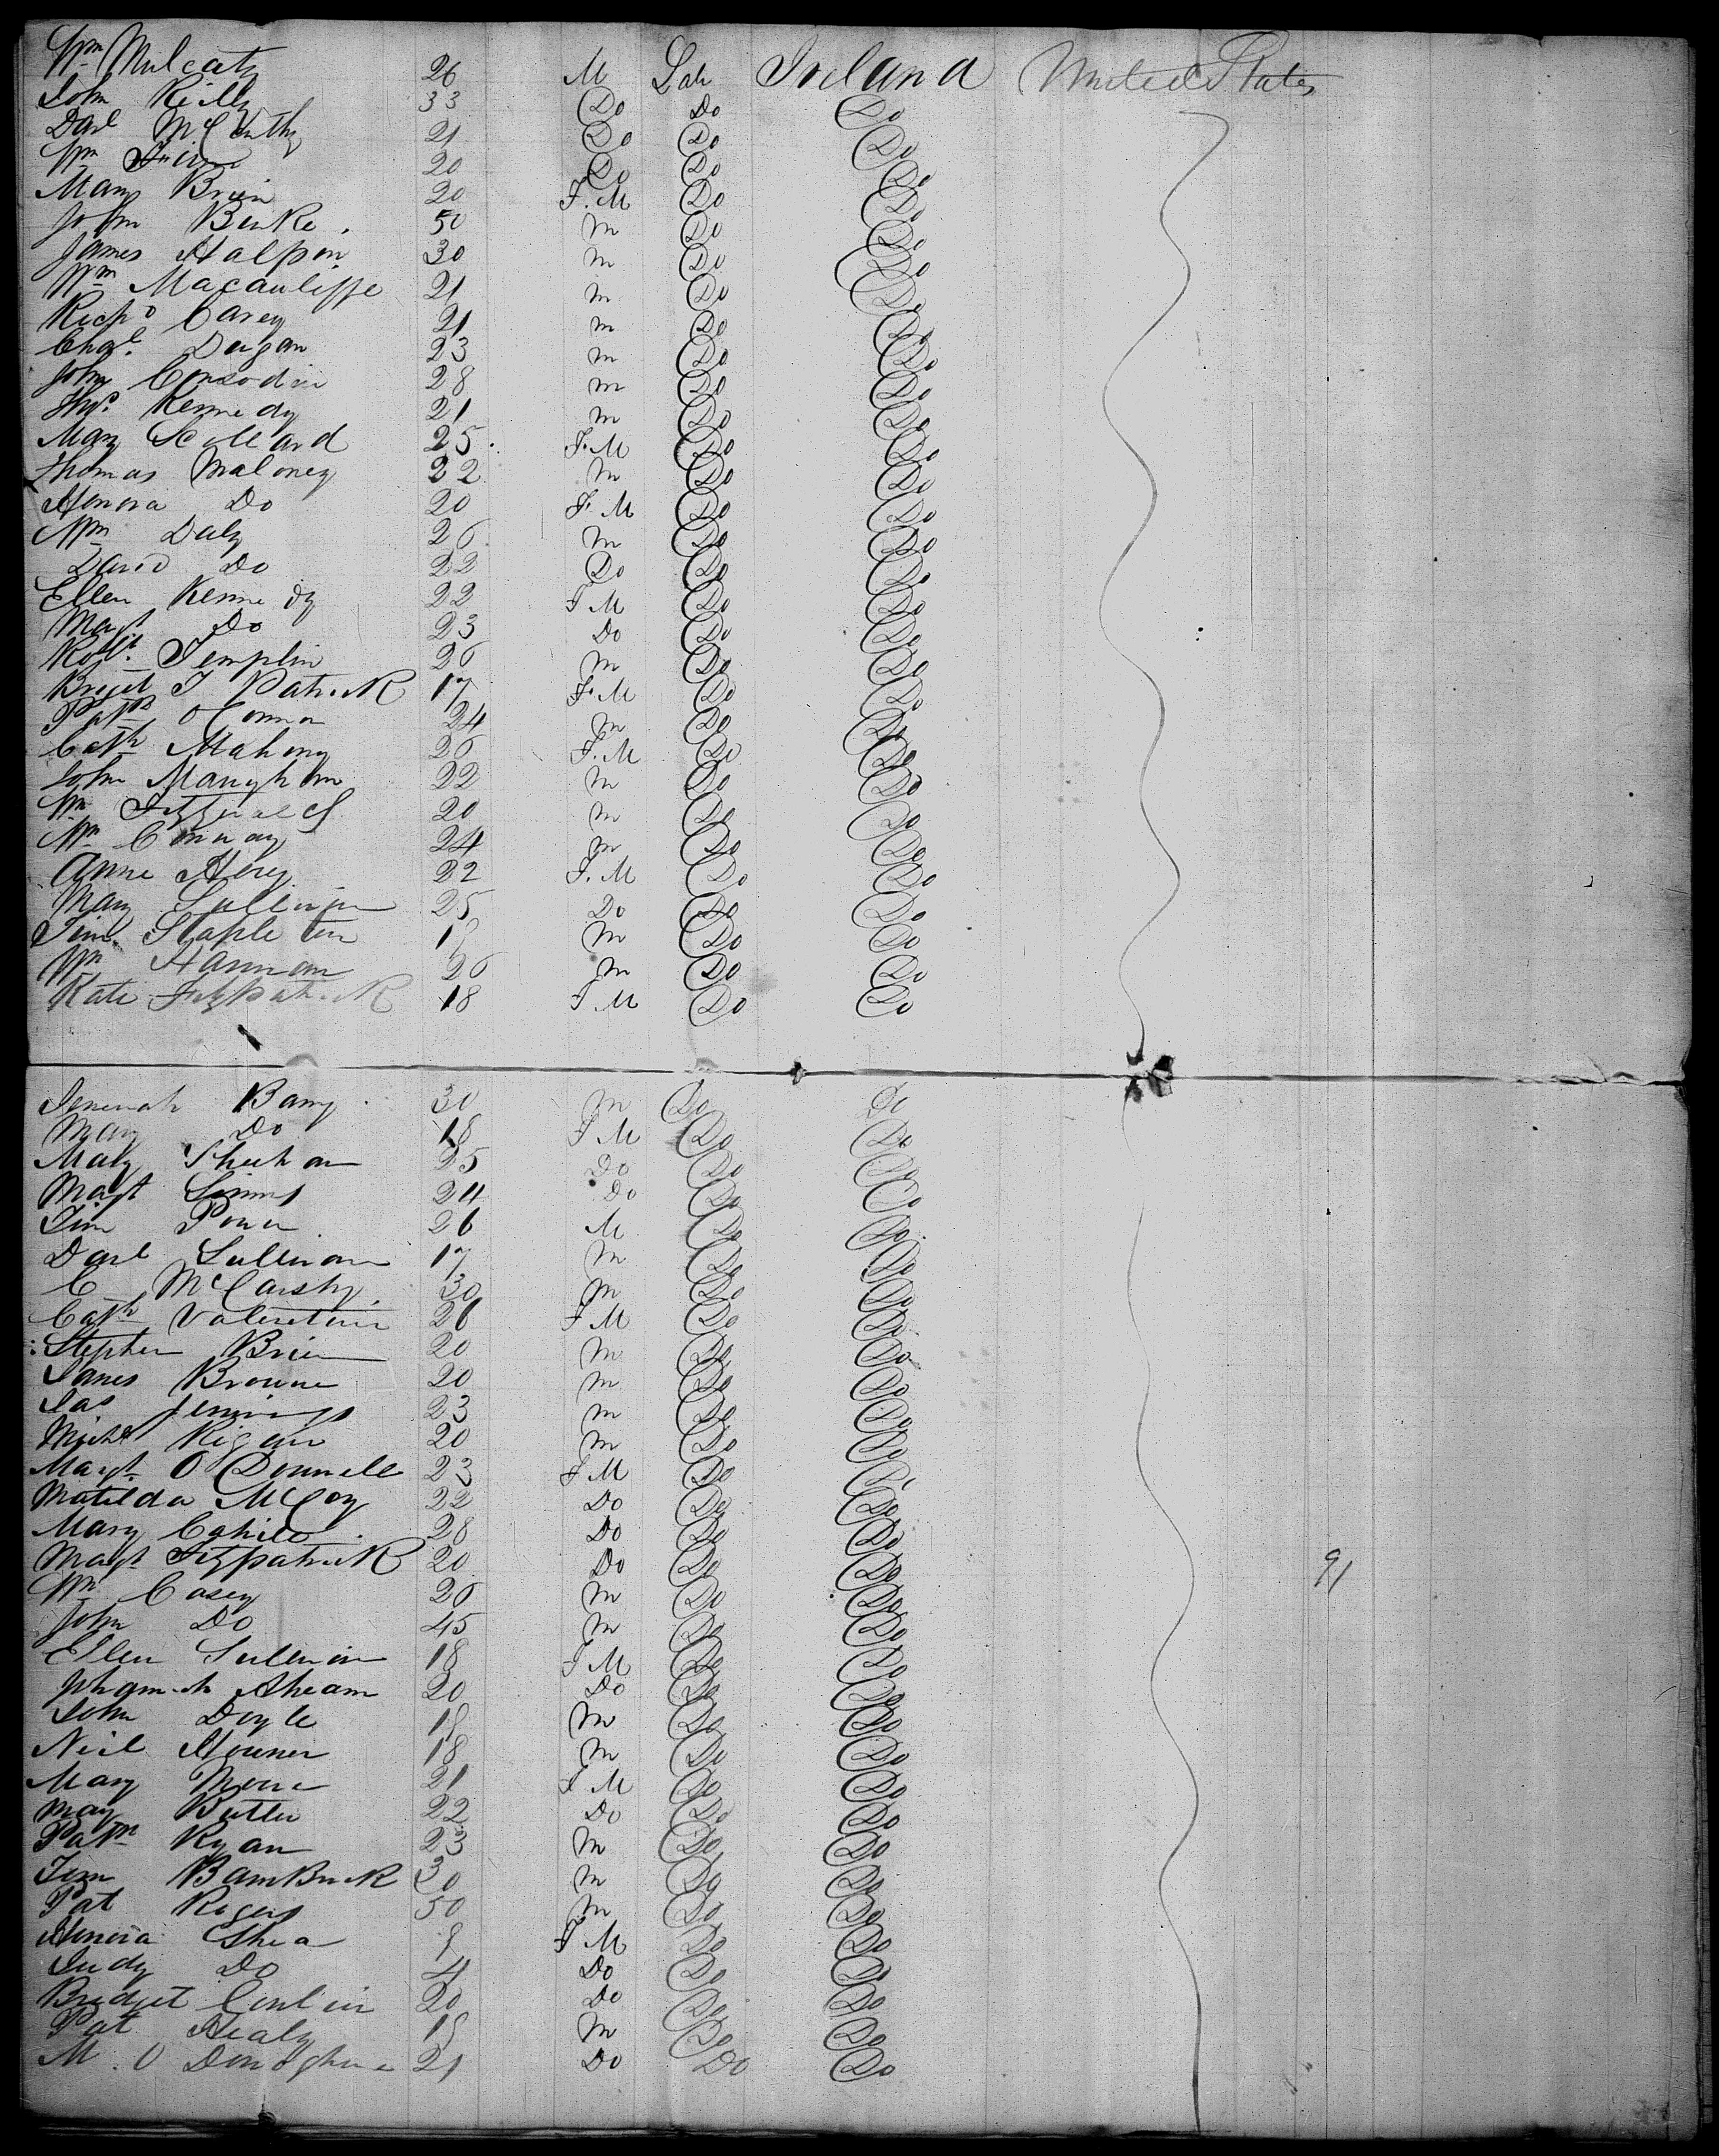 Wm Mulcaty 26 M Lab Ireland United States
John Reilly 33 Do Do Do
Danl McCarthy 21 Do Do Do
Wm 20 Do Do Do
Mary Brien 20 F.M Do Do
John Burke 50 m Do Do
James Halpin 30 m Do Do
Wm Macauliffe 21 m Do Do
Richd Carey 21 m Do Do
Chas. Dugan 23 m Do Do
John Consodin 28 m Do Do
Thos. Kennedy 21 m Do Do
Mary Scollard 25 F.M Do Do
Thomas Maloney 22 m Do Do
Honora Do 20 F.M Do Do
Wm Daly 26 m Do Do
David Do 22 Do Do Do
Ellen Kennedy 22 F M Do Do
Magt Do 23 Do Do Do
Robt. Templin 26 m Do Do
Brigit F Patrick 17 F.M Do Do
Patk O Connor 24 m Do Do
Cath Mahony 26 F.M Do Do
John Maughan 22 m Do Do
Wm Fitzgerald 20 m Do Do
Wm Conway 24 m Do Do
Anne Hoey 22 F.M Do Do
Mary Sullivan 25 Do Do Do
Tim. Stapleton 18 m Do Do
Wm Hannan 26 m Do Do
Kate Fitzpatrick 18 F M Do Do
Jeremiah Barry 30 m Do Do
Mary Do 18 F M Do Do
Mary Sheehan 25 Do Do Do
Magt 24 Do Do Do
Tim Power 26 M Do Do
Danl Sullivan 17 m Do Do
C McCarthy 30 m Do Do
Cath Valentine 26 F M Do Do
Stephen Brien 20 m Do Do
James Browne 20 m Do Do
Jas Jennings 23 m Do Do
Michl Rigan 20 m Do Do
Margt O Donnell 23 F M Do Do
Matilda McCoy 22 Do Do Do
Mary Cahill 28 Do Do Do
Magt Fitzpatrick 20 Do Do Do 91
Wm Casey 26 m Do Do
John Do 45 m Do Do
Ellen Sullivan 18 F M Do Do
Ahearn 20 Do Do Do
John Doyle 18 m Do Do
Neil 18 m Do Do
Mary Moore 21 F M Do Do
Mary Butler 22 Do Do Do
Patk Ryan 23 m Do Do
Tim Bambrick 30 m Do Do
Pat Rogers 50 m Do Do
Honora Shea 9 F M Do Do
Judy Do 4 Do Do Do
Bridget Conlin 20 Do Do Do
Pat Healy 18 m Do Do
M. O Donoghue 21 Do Do Do